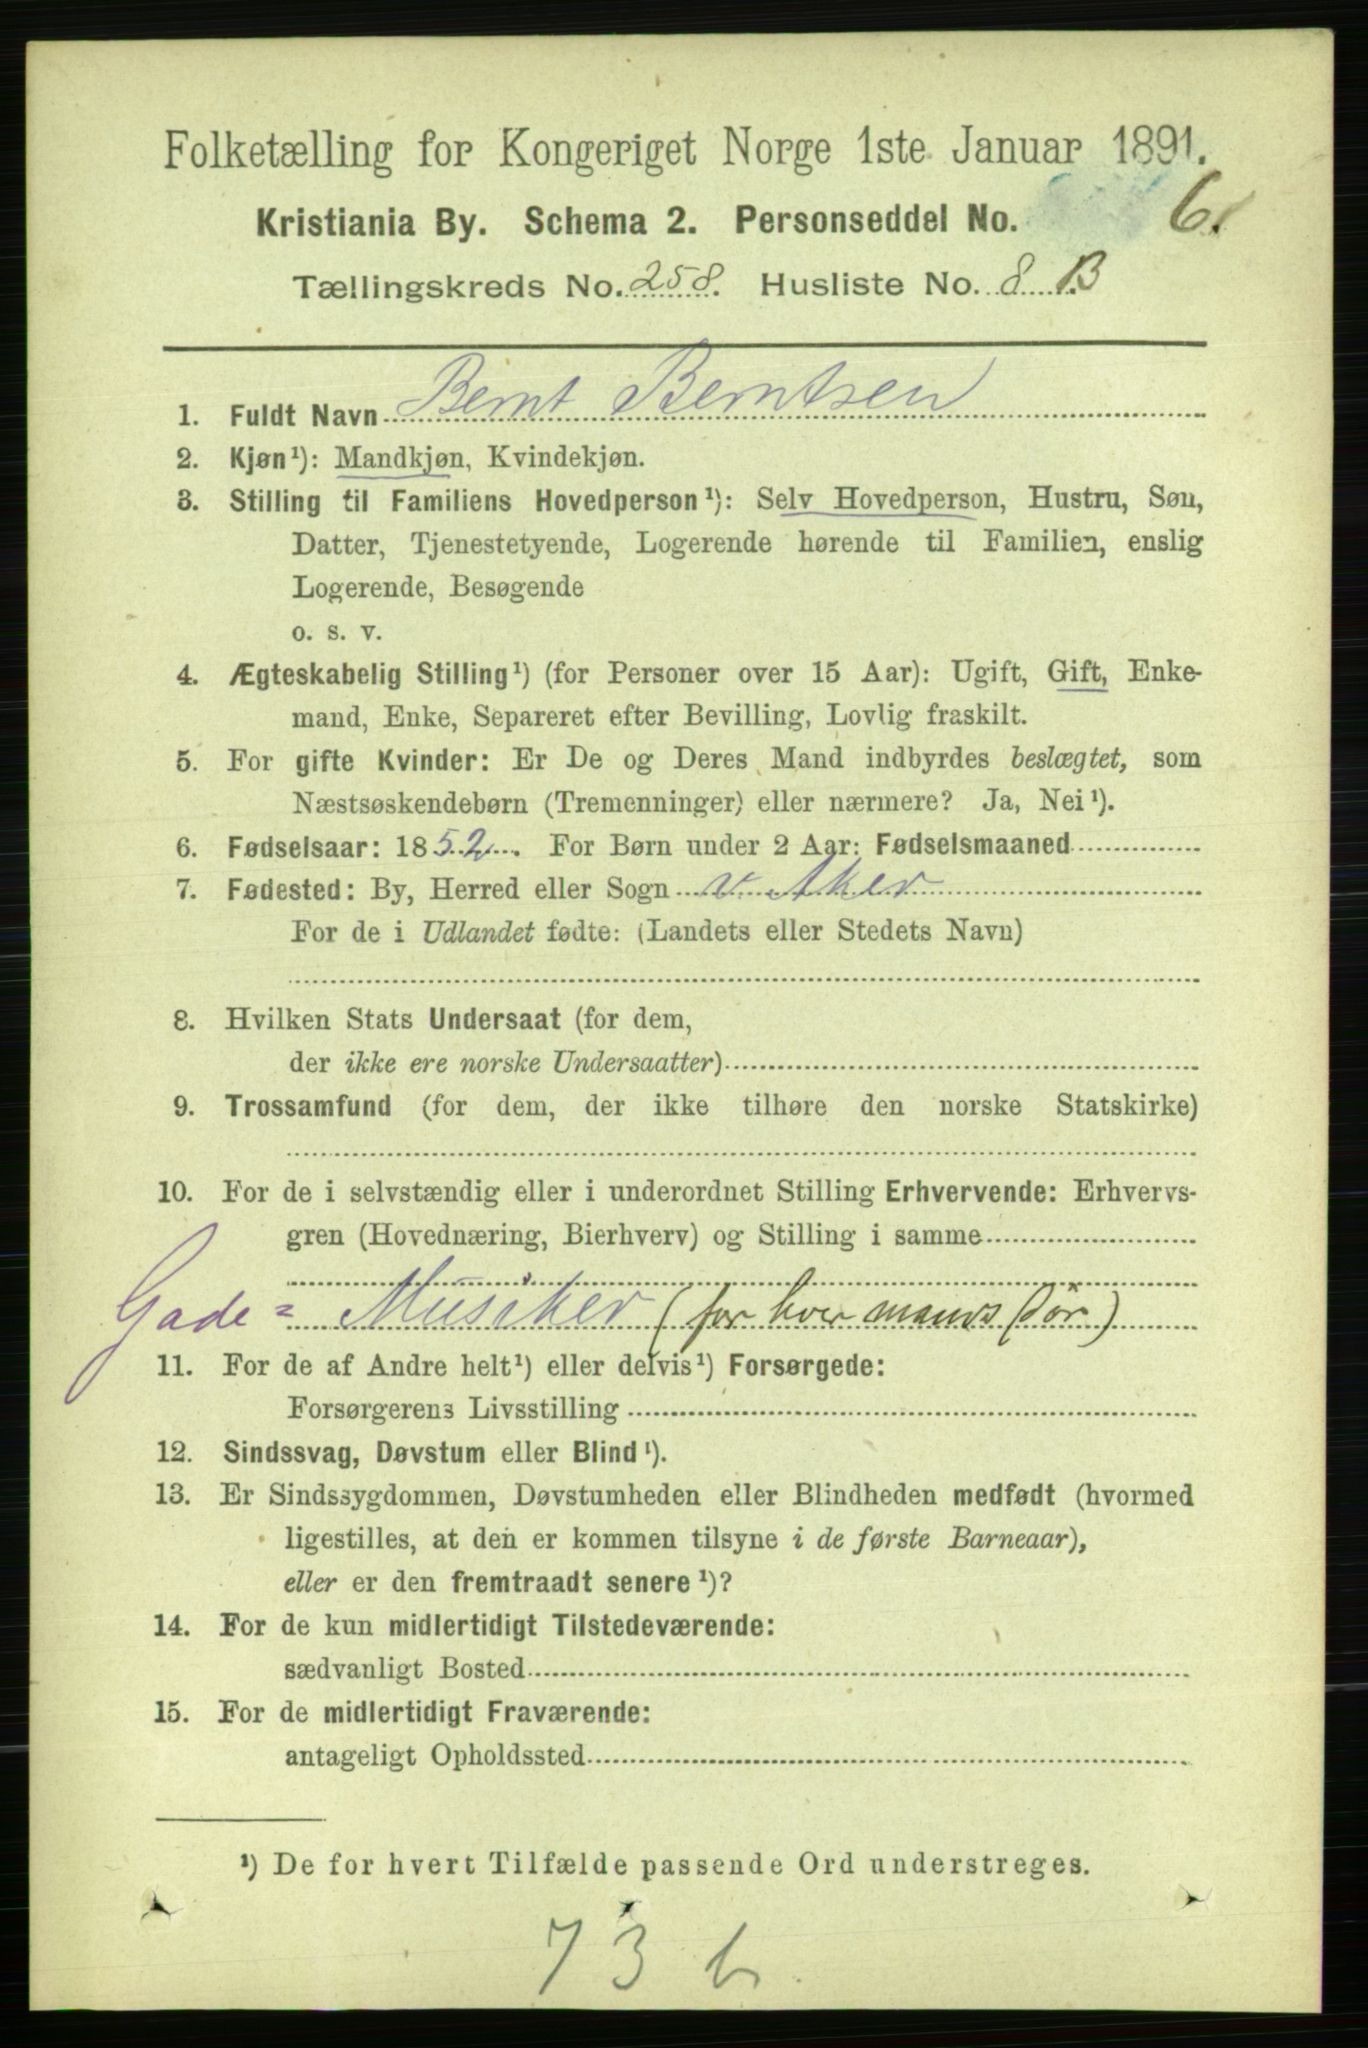 Folketælling for Kongeriget Norge 1ste Januar 1891.
Kristiania By. Schema 2. Personseddel No. 6.
Tællingskreds No. 258. Husliste No. 8 B
1. Fuldt Navn Bernt Berntsen
2. Kjøn¹): Mandkjøn, Kvindekjøn.
3. Stilling til Familiens Hovedperson¹): Selv Hovedperson, Hustru, Søn,
Datter, Tjenestetyende, Logerende hørende til Familien, enslig
Logerende, Besøgende
o. s. v.
4. Ægteskabelig Stilling¹) (for Personer over 15 Aar): Ugift, Gift, Enke-
mand, Enke, Separeret efter Bevilling, Lovlig fraskilt.
5. For gifte Kvinder: Er De og Deres Mand indbyrdes beslægtet, som
Næstsøskendebørn (Tremenninger) eller nærmere? Ja, Nei¹).
6. Fødselsaar: 1852. For Børn under 2 Aar: Fødselsmaaned
7. Fødested: By, Herred eller Sogn v. Aker
For de i Udlandet fødte: (Landets eller Stedets Navn)
8. Hvilken Stats Undersaat (for dem,
der ikke ere norske Undersaatter)
9. Trossamfund (for dem, der ikke tilhøre den norske Statskirke)
10. For de i selvstændig eller i underordnet Stilling Erhvervende: Erhvervs-
gren (Hovednæring, Bierhverv) og Stilling i samme
Gade= Musiker (for hver mands Dør)
11. For de af Andre helt¹) eller delvis¹) Forsørgede:
Forsørgerens Livsstilling
12. Sindssvag, Døvstum eller Blind¹).
13. Er Sindssygdommen, Døvstumheden eller Blindheden medfødt (hvormed
ligestilles, at den er kommen tilsyne i de første Barneaar),
eller er den fremtraadt senere¹)?
14. For de kun midlertidigt Tilstedeværende:
sædvanligt Bosted
15. For de midlertidigt Fraværende:
antageligt Opholdssted
¹) De for hvert Tilfælde passende Ord understreges.
73 b